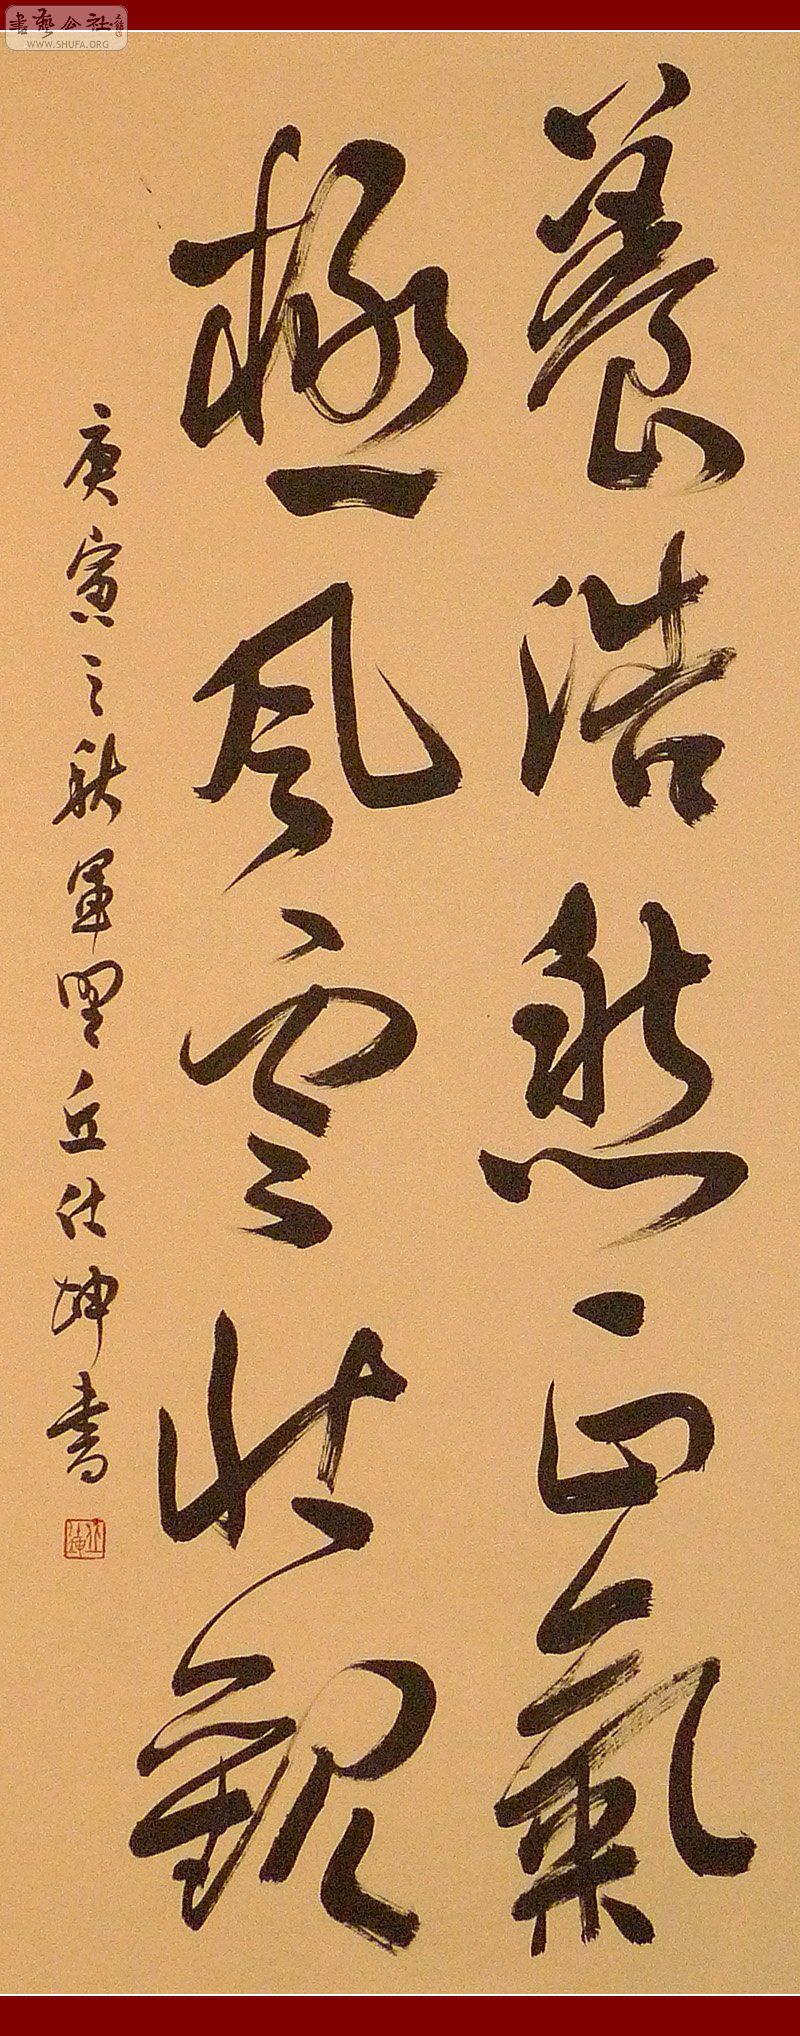 書藝公社
WWW.SHUFA.ORG
養浩然正氣
極風雲壯觀
庚寅之秋軍丘仕坤書
仕坤